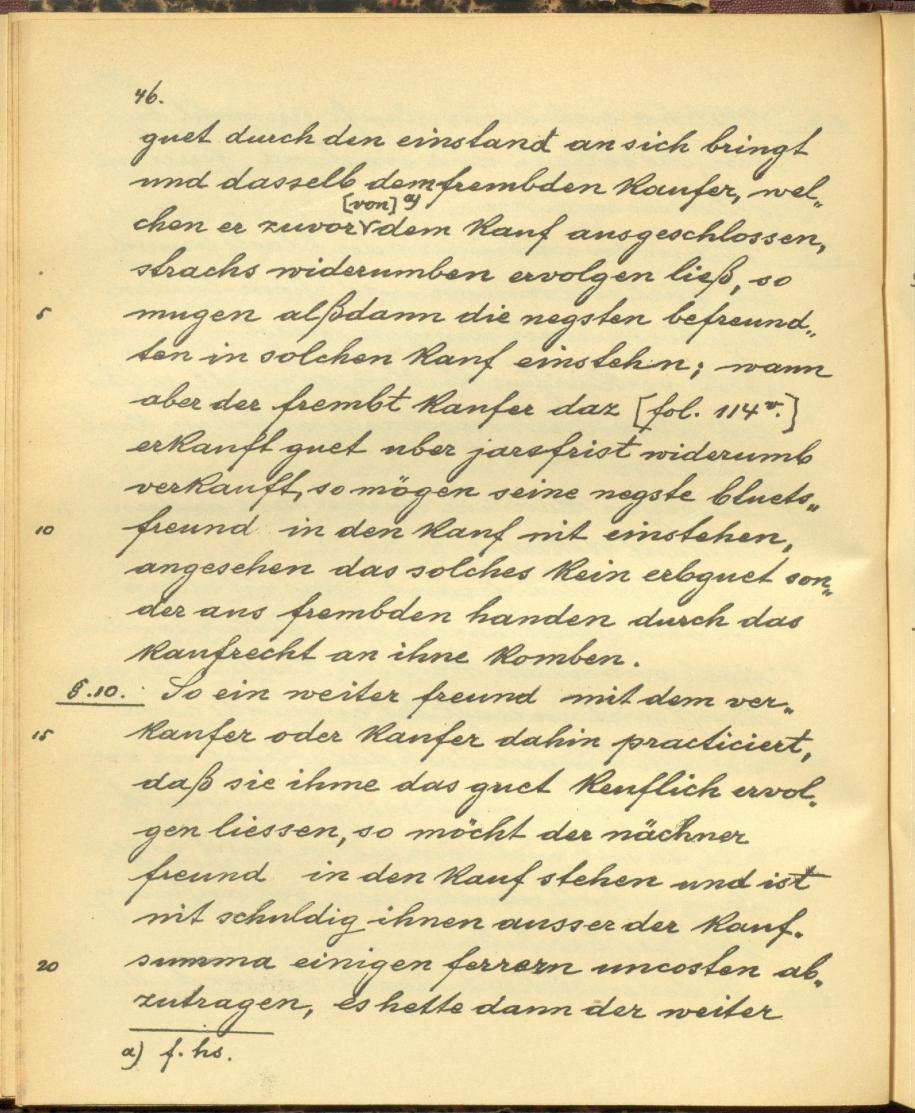 46.
guet durch den einstand an sich bringt
und dasselb dem frembden kaufer, wel„
[von] a)
chen er zuvor √ dem kauf ausgeschlossen,
strachs widerumben ervolgen ließ, so
5 mugen alßdann die negsten befreund„
ten in solchen kauf einstehn; wann
aber der frembt kaufer daz [fol. 114v.]
erkauft guet uber jarsfrist widerumb
verkauft, so mögen seine negste bluets„
10 freund in den kauf nit einstehen,
angesehen das solches kein erbguet son„
der aus frembden handen durch das
kaufrecht an ihne komben.
§.10. So ein weiter freund mit dem ver„
15 kaufer oder kaufer dahin practiciert,
daß sie ihme das guet keuflich ervol„
gen liessen, so möcht der nächner
freund in den kauf stehen und ist
nit schuldig ihnen ausser der kauf„
20 summa einigen ferrern uncosten ab„
zutragen, es hette dann der weiter
a) f. hs.